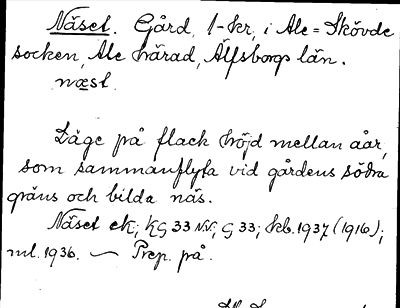 Näset. Gård, 1-kr, i Ale=Skövde
socken, Ale härad, Älfsborgs län.
næst.
Läge på flack höjd mellan åar,
som sammanflyta vid gårdens södra
gräns och bilda näs.
Näset ek; KG 33 NV; G 33; kb. 1937 (1916);
ml. 1936. — Prep. på.